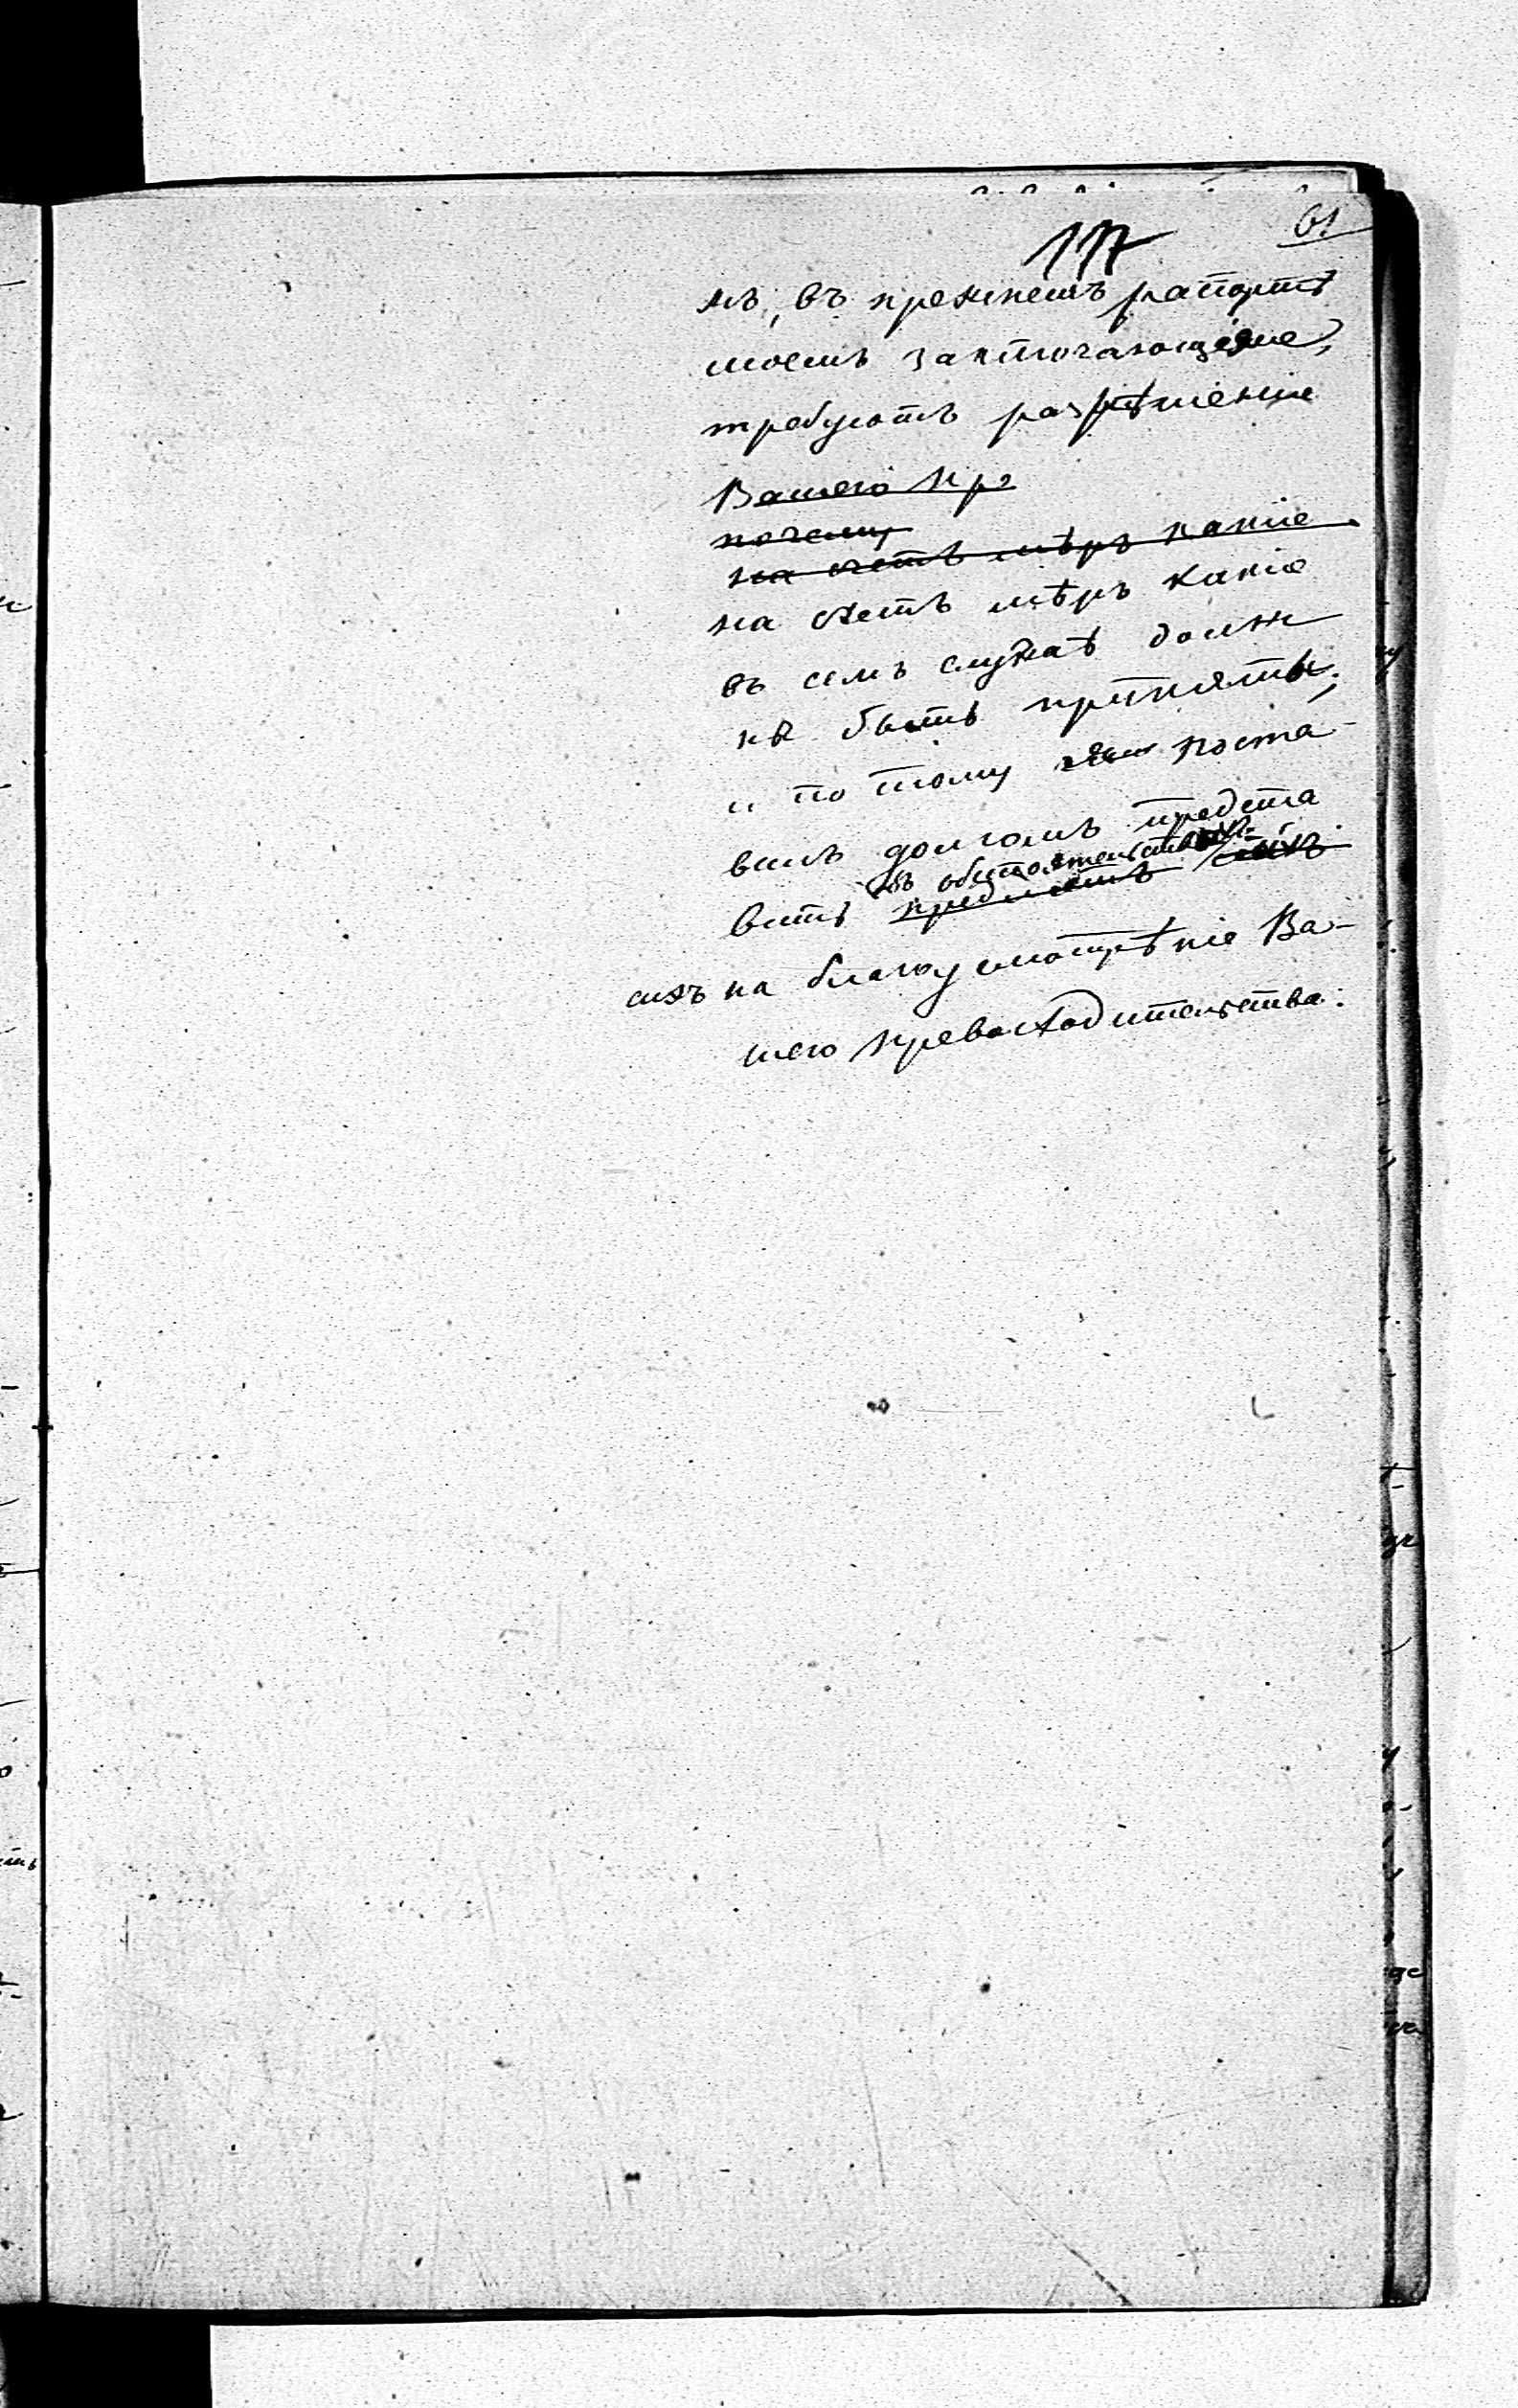 117
61
мъ, въ прежнемъ рапортѣ
моемъ заключающіяся,
требуютъ разрѣшеніе
Вашего пр
почему
на счетъ мѣръ какіе
на счетъ мѣръ какіе
въ семъ случаѣ долж
ны быть приняты;
и по тому поста-
вилъ долгомъ предста
объ обстоятельствахъ
вить предметъ сихъ
сихъ на благоусмотрѣніе Ва-
шего превосходительства.